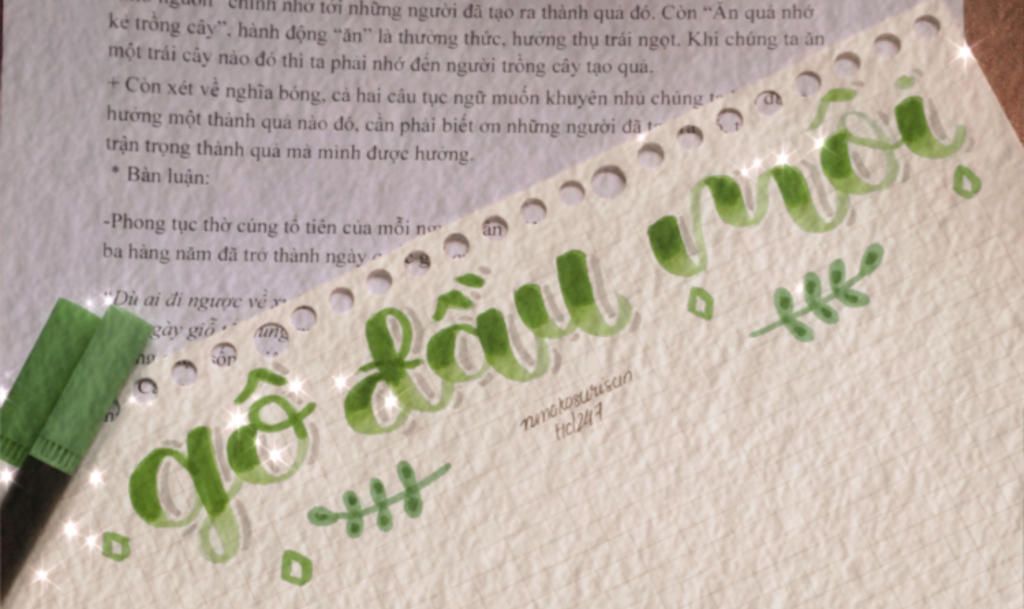 chính nhớ tới những người đã tạo ra thành quả đó. Còn “Ăn quả nhớ
kẻ trồng cây”, hành động “ăn” là thưởng thức, hưởng thụ trái ngọt. Khi chúng ta ăn
một trái cây nào đó thì ta phải nhớ đến người trồng cây tạo quả.
+ Còn xét về nghĩa bóng, cả hai câu tục ngữ muốn khuyên nhủ chúng
hưởng một thành quả nào đó, cần phải biết ơn những người đã
trận trọng thành quả mà mình được hưởng.
* Bàn luận:
-Phong tục thờ cúng tổ tiên của mỗi
ba hàng năm đã trở thành ngày
“Dù ai đi ngược về
gày giỗ
gô đầu môi